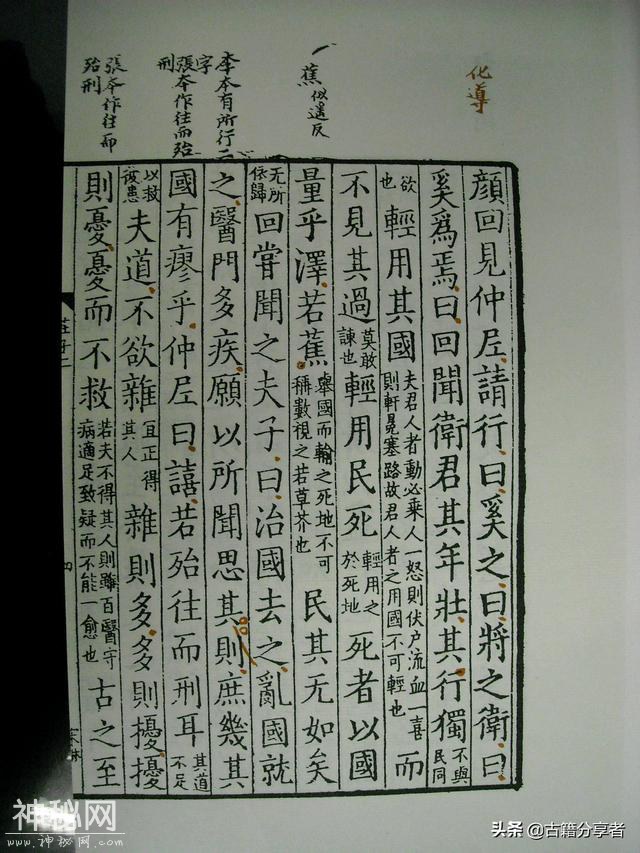 化導
蕉似遥反
李本有所行二
字
張本作往而殆
刑
張本作往而
殆刑
顏回見仲尼請行曰奚之曰將之衛曰
奚爲焉曰回聞衛君其年壯其行獨不與民同
欲也輕用其國夫君人者動必乘人一怒則伏尸流血一喜則軒冕塞路故君人者之用國不可輕也而
不見其過莫敢諫也輕用民死輕用之於死地死者以國
量乎澤若蕉舉國而輸之死地不可稱數視之若草芥也民其无如矣
无所依歸回嘗聞之夫子曰治國去之亂國就
之醫門多疾願以所聞思其則庶幾其
國有瘳乎仲尼曰譆若殆往而刑耳其道不足
以救彼患夫道不欲雜宜正得其人雜則多多則擾擾
則憂憂而不救若夫不得其人則雖百醫守病適足致疑而不能一愈也古之至
莊子二
四
神秘网
www.神秘网.com
头条 @古籍分享者